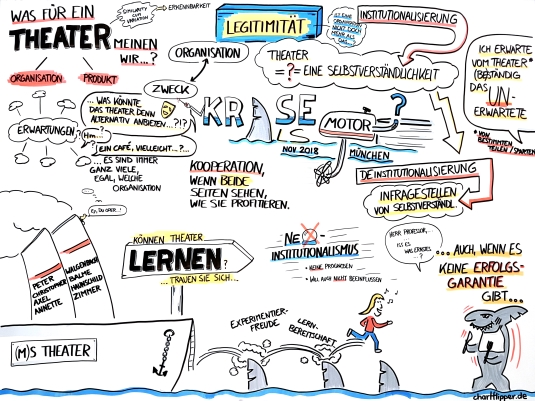 WAS FÜR EIN
THEATER
MEINEN
WIR...?
SIMILARITY
VARIATION
ERKENNBARKEIT
ORGANISATION
PRODUKT
ERWARTUNGEN
ORGANISATION
ZWECK
... WAS KÖNNTE
DAS THEATER DENN
ALTERNATIV ANBIETEN...?!?
Hm...?
EIN CAFÉ, VIELLEICHT...?
... ES SIND IMMER
GANZ VIELE,
EGAL, WELCHE
ORGANISATION
LEGITIMITÄT
INSTITUTIONALISIERUNG
THEATER
=?= EINE SELBSTVERSTÄNDLICHKEIT
ICH ERWARTE
VOM THEATER*
(BE)STÄNDIG
DAS
UN-
ERWARTETE
* VON
BESTIMMTEN
TEILEN / SPARTEN
KRISE
ALS
MOTOR
?
NOV. 2018
MÜNCHEN
KOOPERATION,
WENN BEIDE
SEITEN SEHEN,
WIE SIE PROFITIEREN.
DEINSTITUTIONALISIERUNG
INFRAGESTELLEN
VON SELBSTVERSTÄNDL.
PETER
CHRISTOPHER
AXEL
ANNETTE
WALGENBACH
BALME
HAUNSCHILD
ZIMMER
(M)S THEATER
KÖNNEN THEATER
LERNEN?
... TRAUEN SIE SICH...
NEO-
INSTITUTIONALISMUS
- KEINE PROGNOSEN
- WILL AUCH NICHT BEEINFLUSSEN
HERR PROFESSOR,
IST ES
WAS ERNSTES
?
... AUCH, WENN ES
KEINE ERFOLGS-
GARANTIE
GIBT...
EXPERIMENTIER-
FREUDE
LERN-
BEREITSCHAFT
chartflipper.de